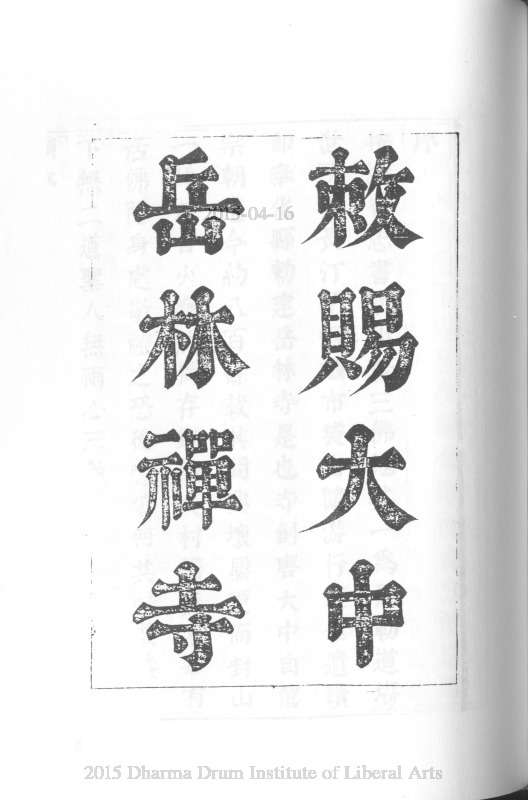 敕賜大中
岳林禪寺
2015-04-16
2015 Dharma Drum Institute of Liberal Arts